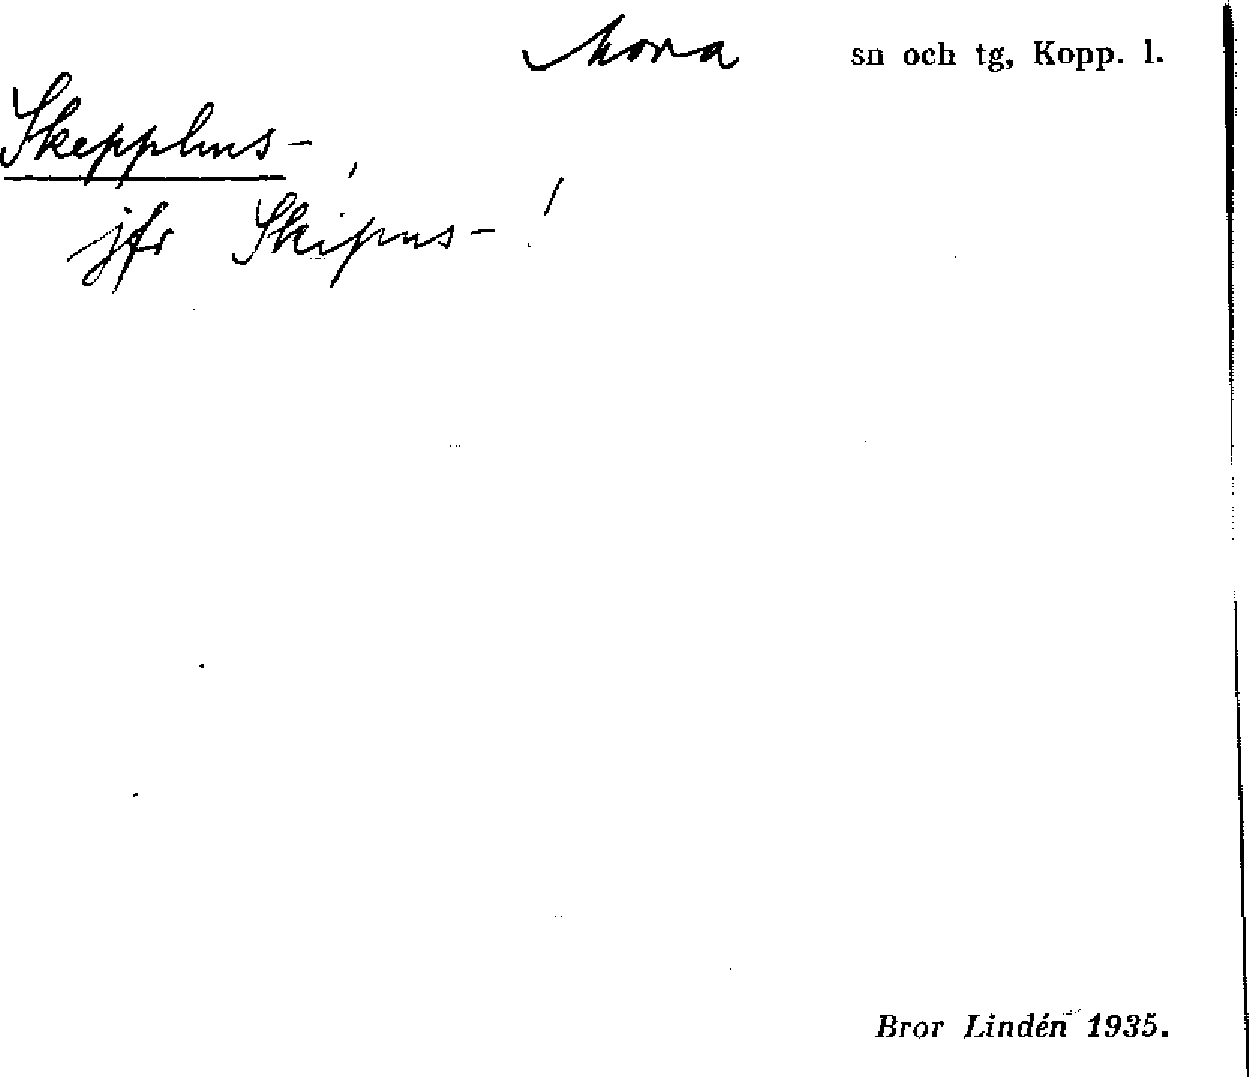 Mora sn och tg, Kopp. l.
Skepphus-,
jfr Skipus-!
Bror Lindén 1935.